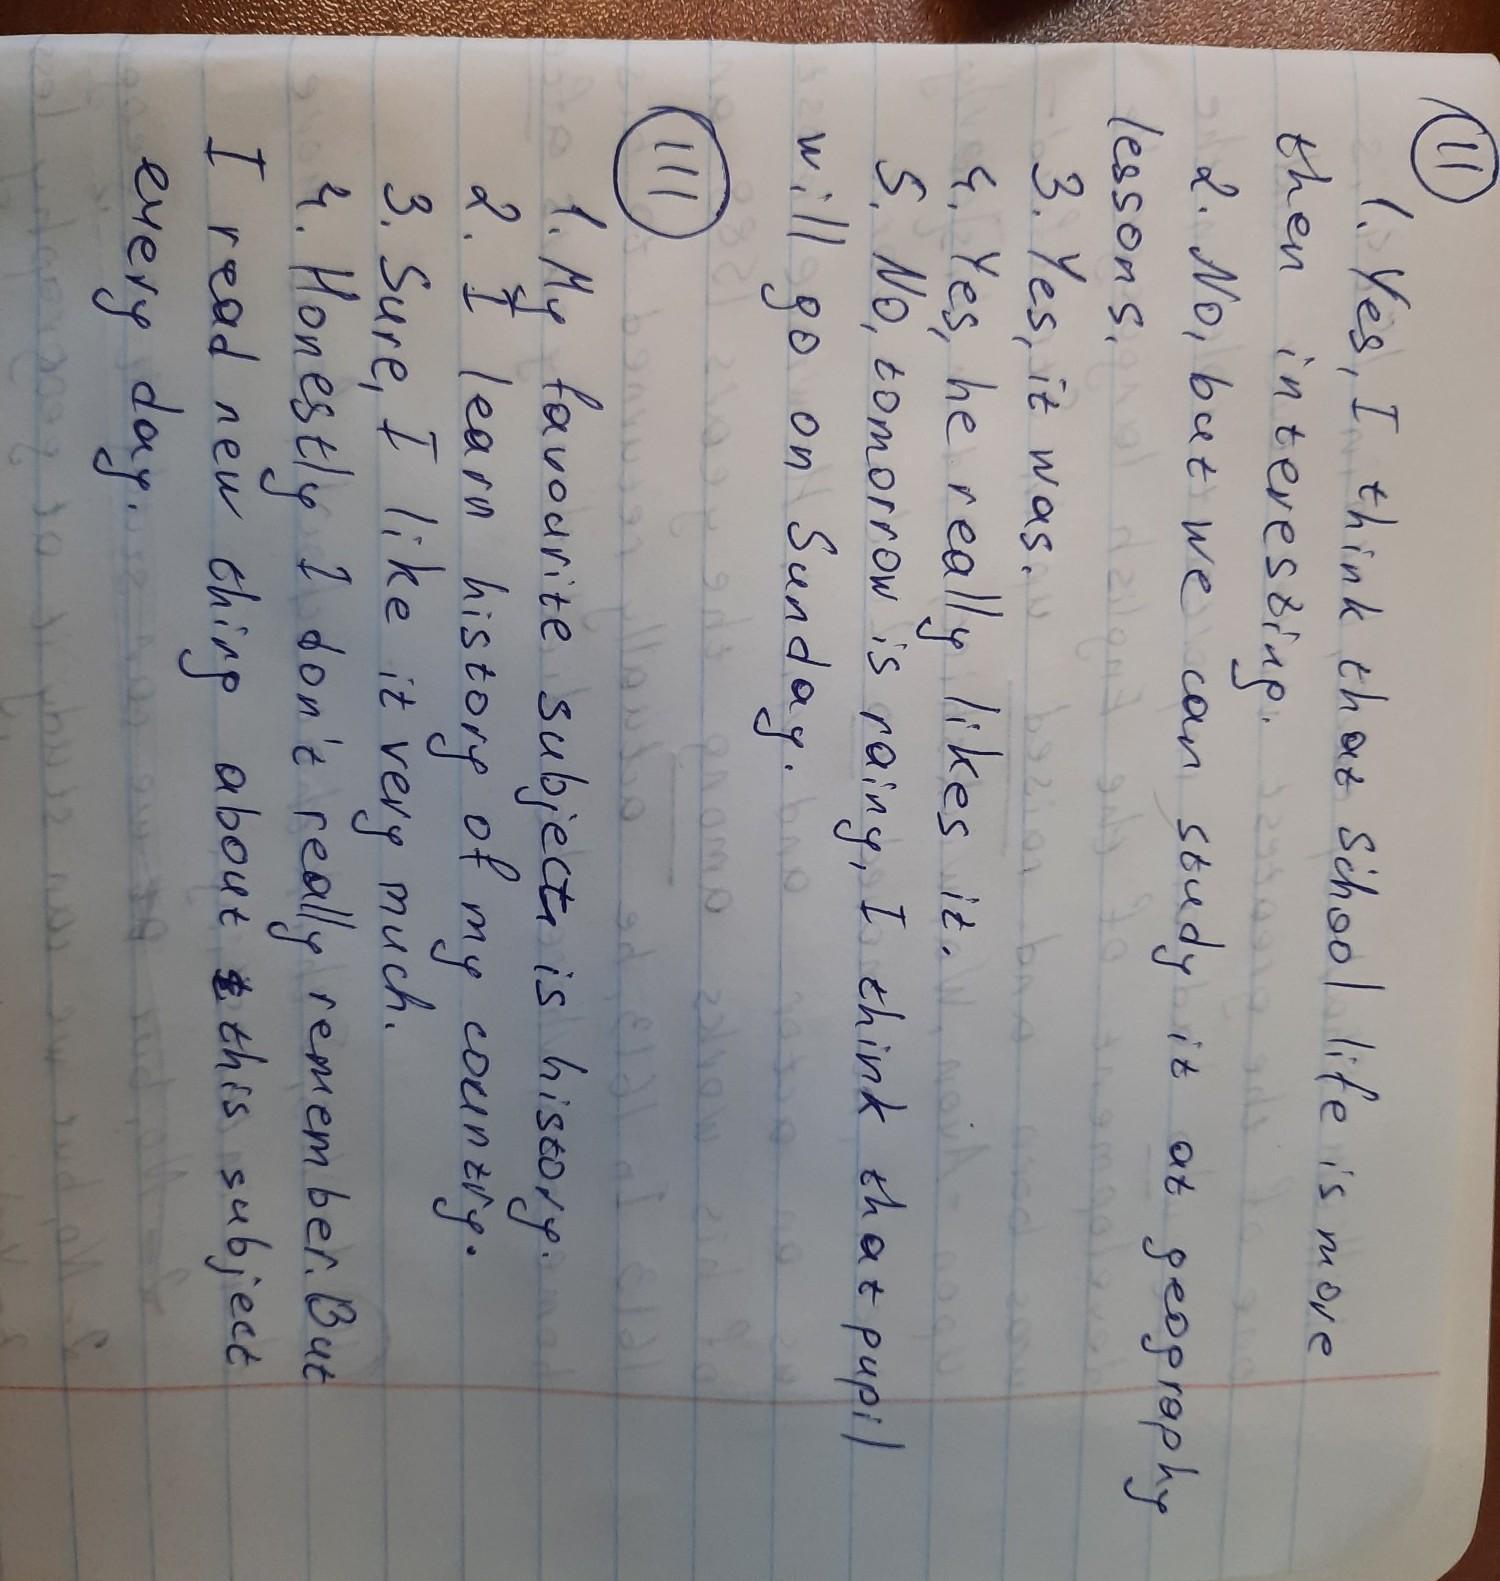 II
1. Yes, I think that School life is more
then interesting.
2. No, but we can study it at geography
lessons.
3. Yes, it was.
4. Yes, he really likes it.
5. No, tomorrow is rainy, I think that pupil
will go on Sunday.
III
1. My favourite subject is history.
2. I learn history of my country.
3. Sure, I like it very much.
4. Honestly I don't really remember. But
I read new thing about this subject
every day.